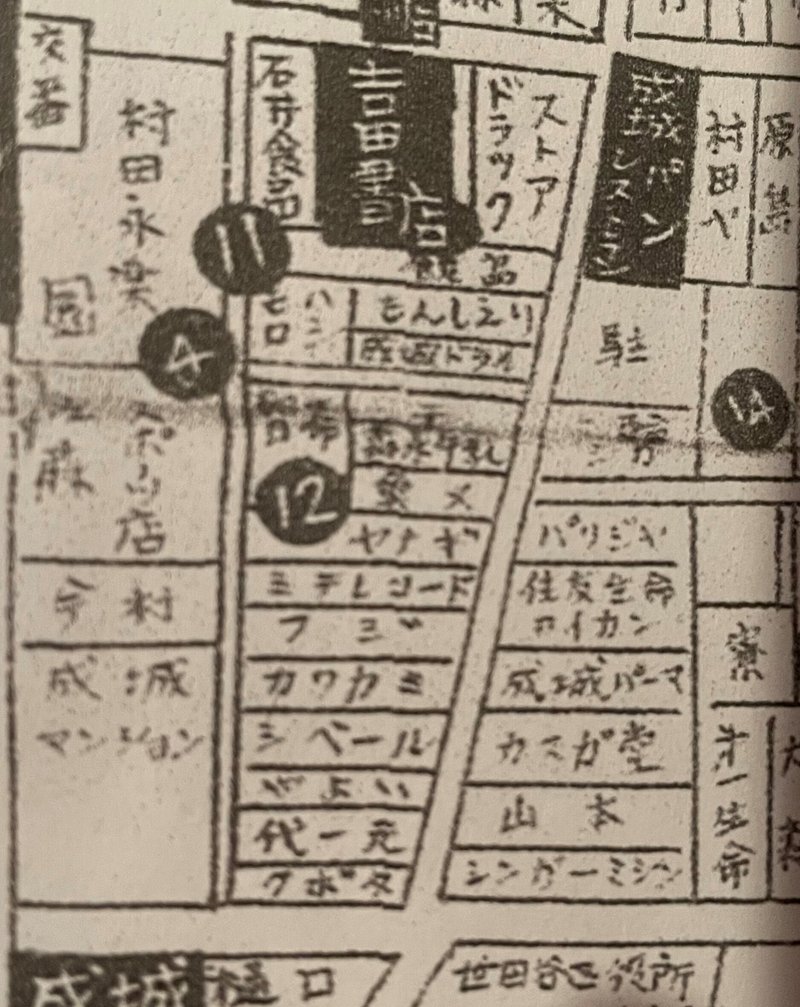 交番
村田永楽園
石井食品
吉田書店
ドラックストア
成城パン
村田ベ
11
もんしぇり
成城ドライ
駐
4
14
12
森永牛乳
ヤナギ
パリジャ
ミチレコード
住友生命
今村
フジ
ロイカン
寮
カワカミ
成城パーマ
成城
マンション
シベール
カスガ堂
第一生命
やよい
山本
代一元
クボタ
シンガーミシン
成城
樋口
世田谷区役所